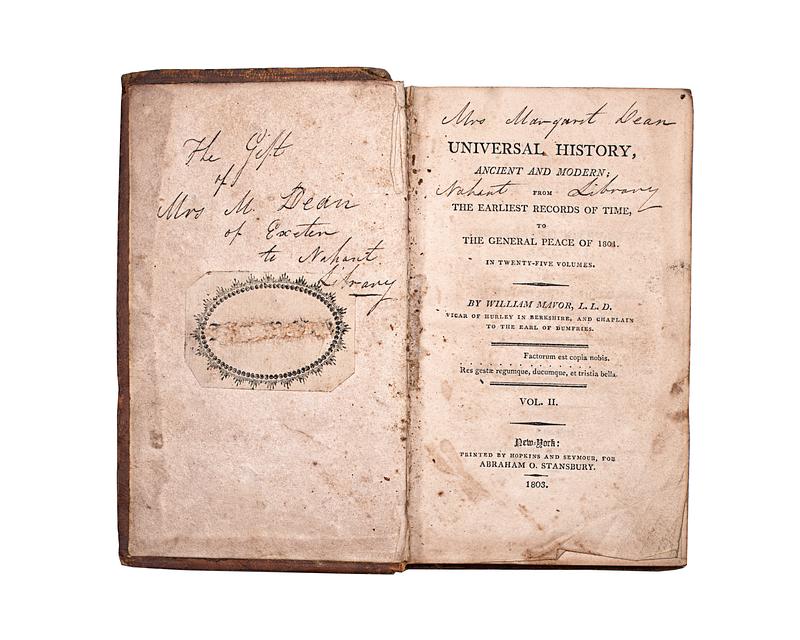 The Gift
of
Mrs M. Dean
of Exeter
to Nahant
Library
Mrs Margaret Dean
UNIVERSAL HISTORY,
ANCIENT AND MODERN;
Nahant FROM Library
THE EARLIEST RECORDS OF TIME,
TO
THE GENERAL PEACE OF 1801.
IN TWENTY-FIVE VOLUMES.
BY WILLIAM MAVOR, L.L.D.
VICAR OF HURLEY IN BERKSHIRE, AND CHAPLAIN
TO THE EARL OF DUMFRIES.
Factorum est copia nobis.
Res gestæ regumque, ducumque, et tristia bella.
VOL. II.
New-York:
PRINTED BY HOPKINS AND SEYMOUR, FOR
ABRAHAM O. STANSBURY.
1803.